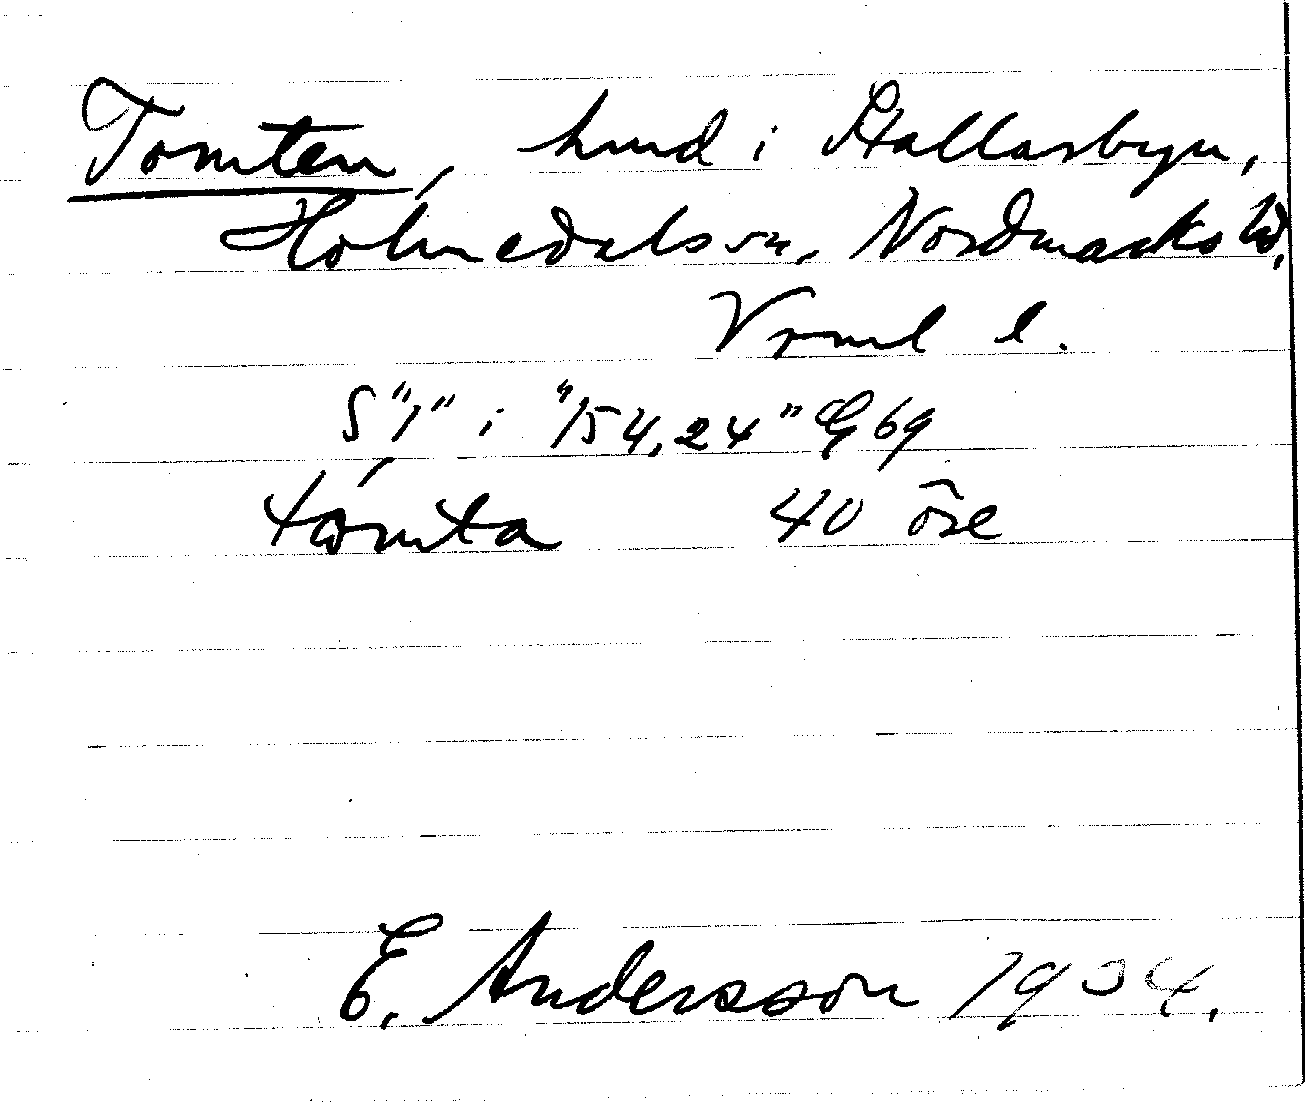 Tomten, hmd i Stallarbyn,
Holmedals sn, Nordmarks hd,
Vrml l.
S "1" i "154,24" G 69
tomta 40 öre
E. Andersson 1934.